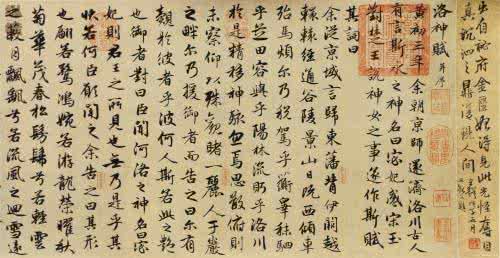 洛神賦 并序
黄初三年余朝京師還濟洛川古人
有言斯水之神名曰宓妃感宋玉
對楚王說神女之事遂作斯賦
其詞曰
余從京域言歸東藩背伊闕越
轘轅經通谷陵景山日既西傾車
殆馬煩尔乃税駕乎蘅皋秣駟
乎芝田容與乎陽林流眄乎洛川
於是精移神駭忽焉思散俯則
未察仰以殊觀睹一麗人于巖
之畔尔乃援御者而告之曰尔有
覿於彼者乎彼何人斯若此之艷
也御者對曰臣聞河洛之神名曰宓
妃則君王之所見也無乃是乎其
狀若何臣願聞之余告之曰其形
也翩若驚鴻婉若游龍榮曜秋
菊華茂春松髣髴兮若輕雲
之蔽月飄飖兮若流風之迴雪遠